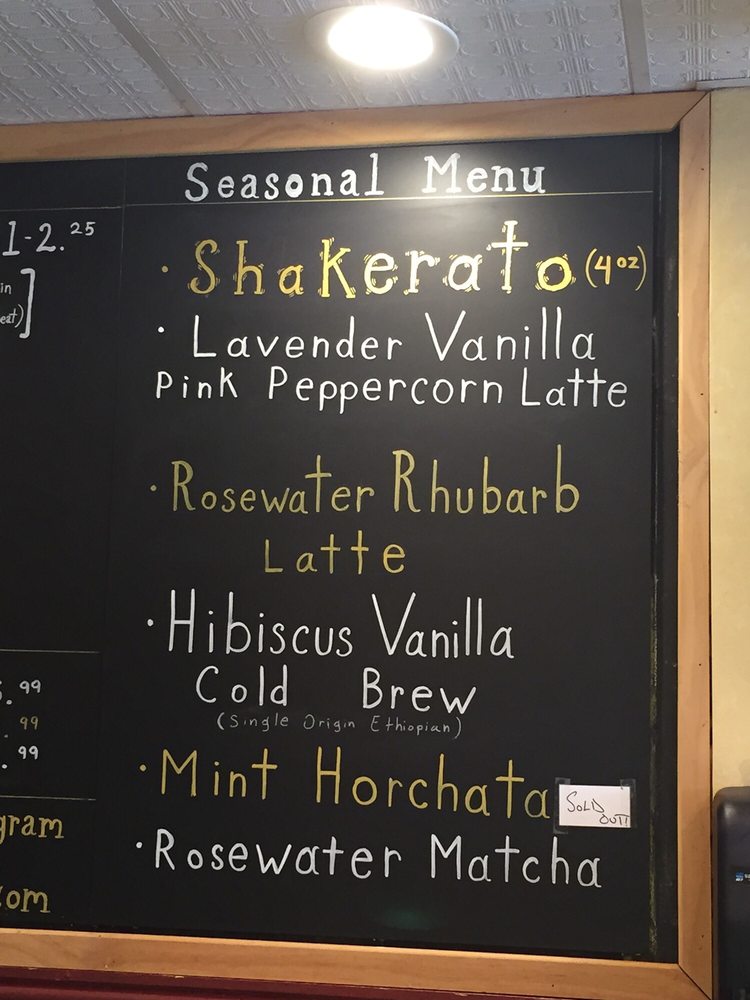 Seasonal Menu
1-2.25
in
eat)
• Shakerato (4oz)
• Lavender Vanilla
Pink Peppercorn Latte
• Rosewater Rhubarb
Latte
• Hibiscus Vanilla
Cold Brew
(Single Origin Ethiopian)
• Mint Horchata
SOLD
OUT!!
• Rosewater Matcha
.99
.99
.99
gram
com